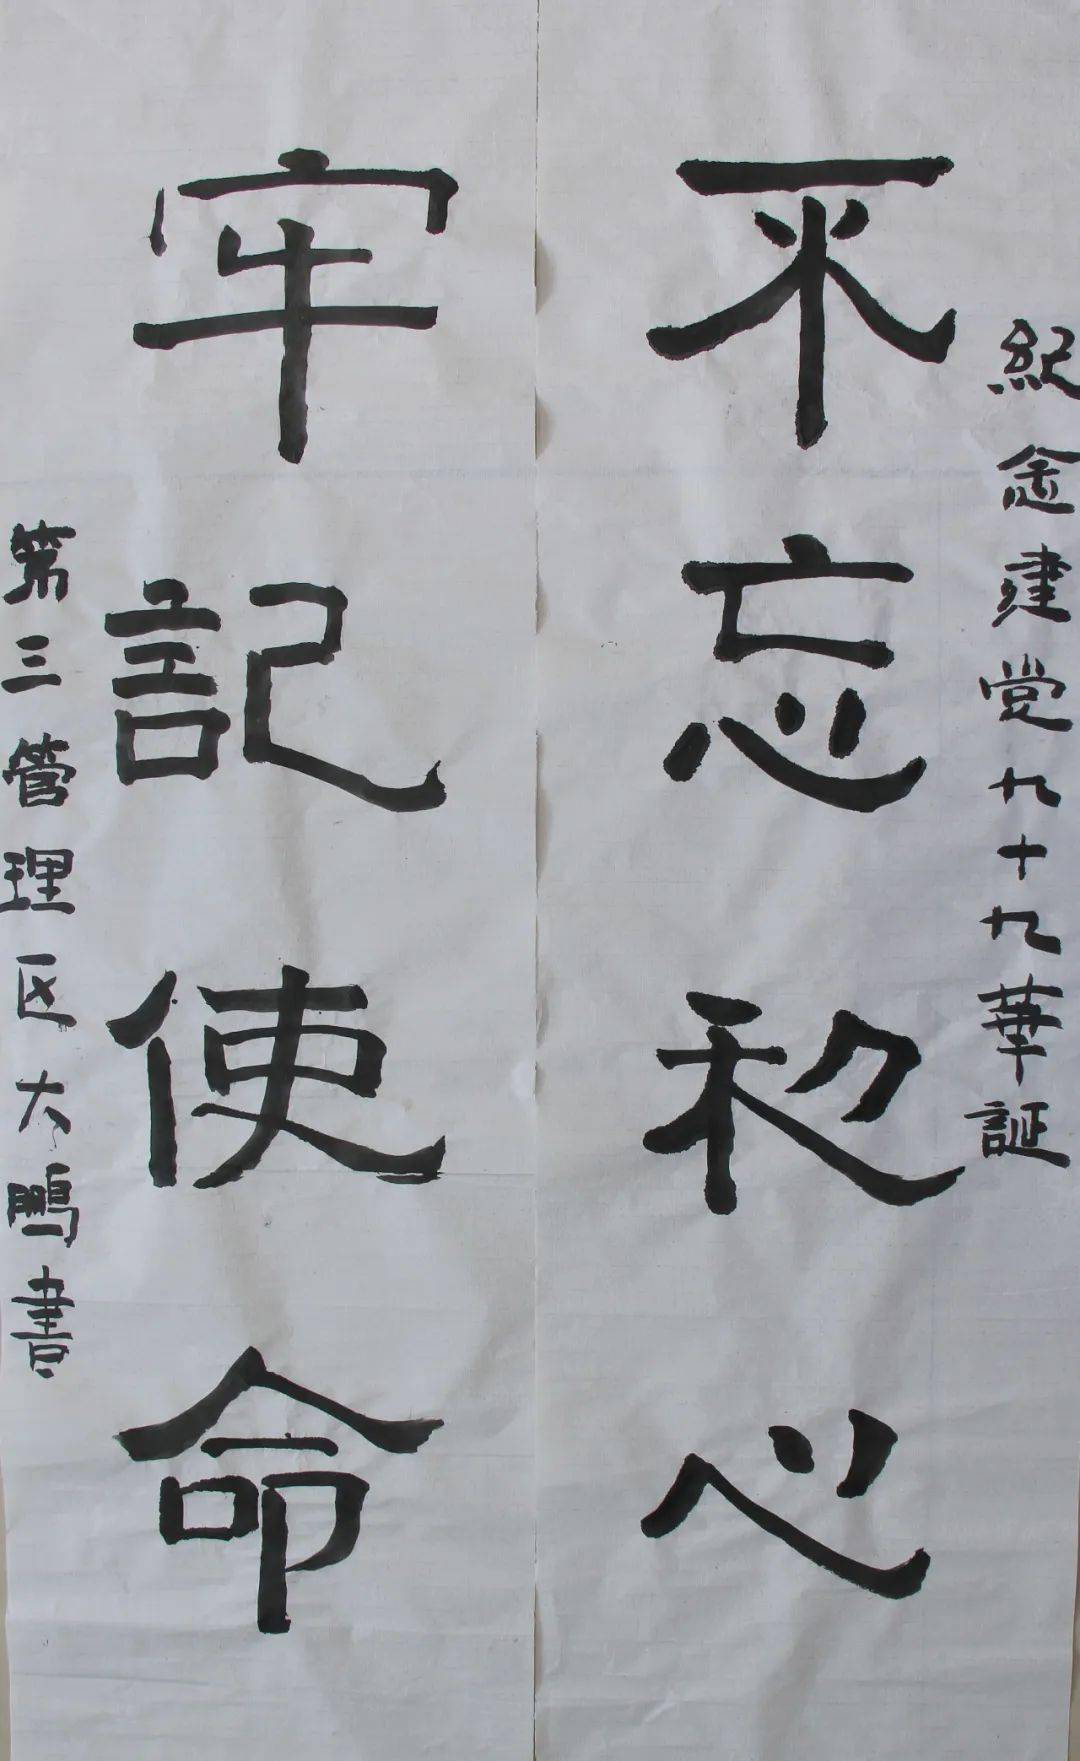 紀念建党九十九華誕
不忘初心
牢記使命
第三管理区大鵬書